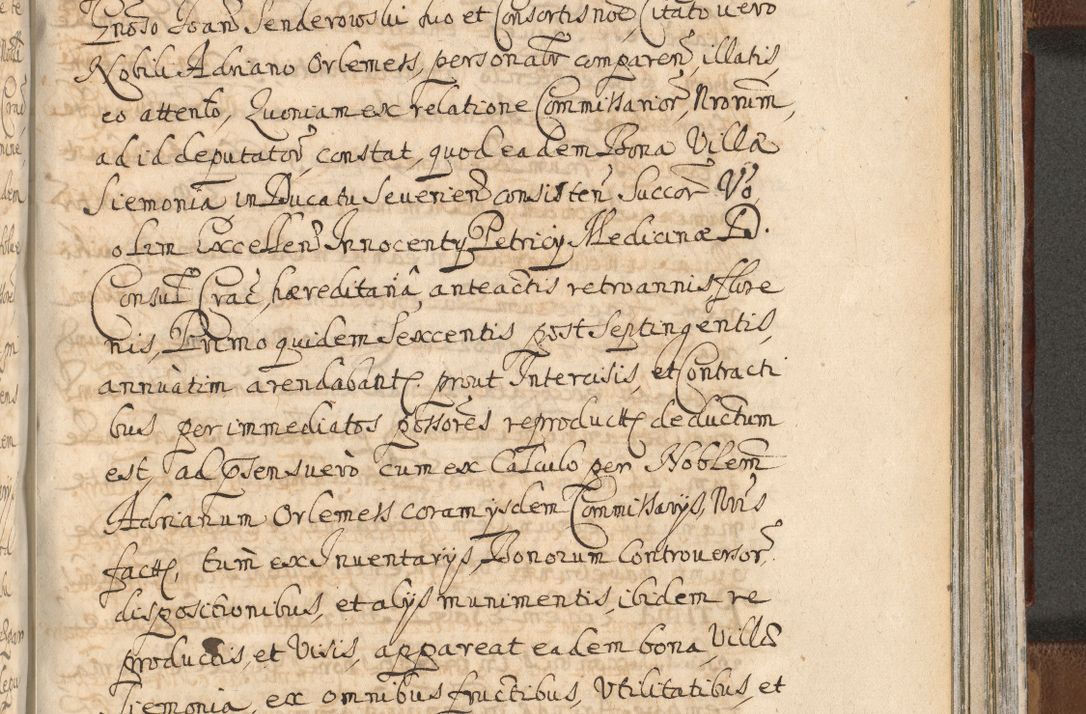 Gnoso Joan Senderowski suo et Consortis noe, Citato uero
Nobili Adriano Orlemess, personalr comparen, illatis,
eo attento, Quoniam ex relatione Commissarior, Nrorum,
ad id deputator, constat, quod eadem Bona Villa
Siemonia in Ducatu Seuerien consisten Succor Vo,
olim Excellen Innocenty Petricy Medicinæ D.
Consul Crac, hæreditaria, anteactis retro annis flore
nis, Primo quidem Sexcentis, post Septingentis,
annuatim arendabant, prout Intercisis, et Contracti
bus per immediatos possores reproduct deductum
est, ad psens uero cum ex Calculo per Noblem
Adrianum Orlemess coram ysdem Commissarys, Nris
fact, tum ex Inuentarys, Bonorum Controuersor
dispositionibus, et alys munimentis, ibidem re
productis, et Visis, appareat eadem bona, Villa
Siemonia, ex omnibus fructibus, Vtilitatibus, et